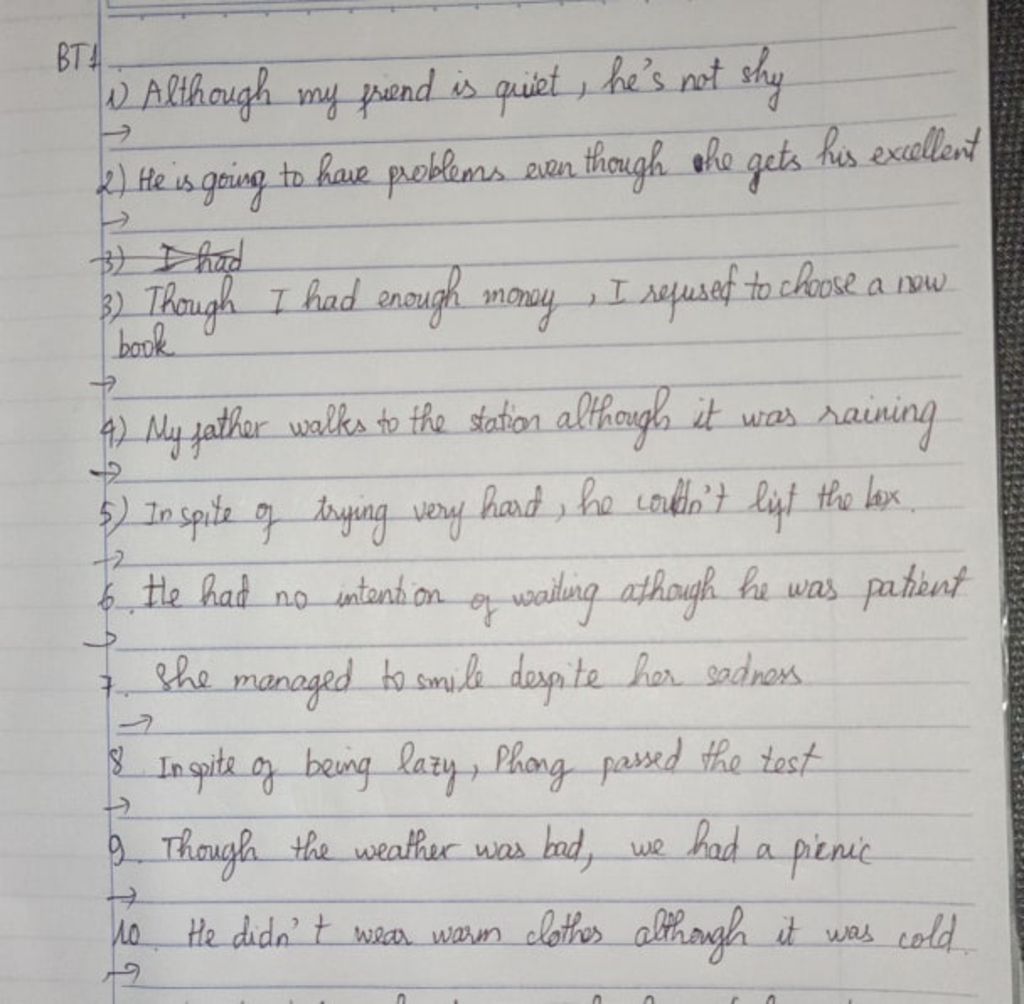 BT1
1) Although my friend is quiet, he's not shy
→
2) He is going to have problems even though he gets his excellent
→
3) I had
3) Though I had enough money, I refused to choose a new
book
→
4) My father walks to the station although it was raining
→
5) In spite of trying very hard, he couldn't lift the box.
→
6. He had no intention of waiting athough he was patient
→
7. She managed to smile despite her sadness
→
8 In spite of being lazy, Phong passed the test
→
9. Though the weather was bad, we had a picnic
→
10. He didn't wear warm clothes although it was cold.
→